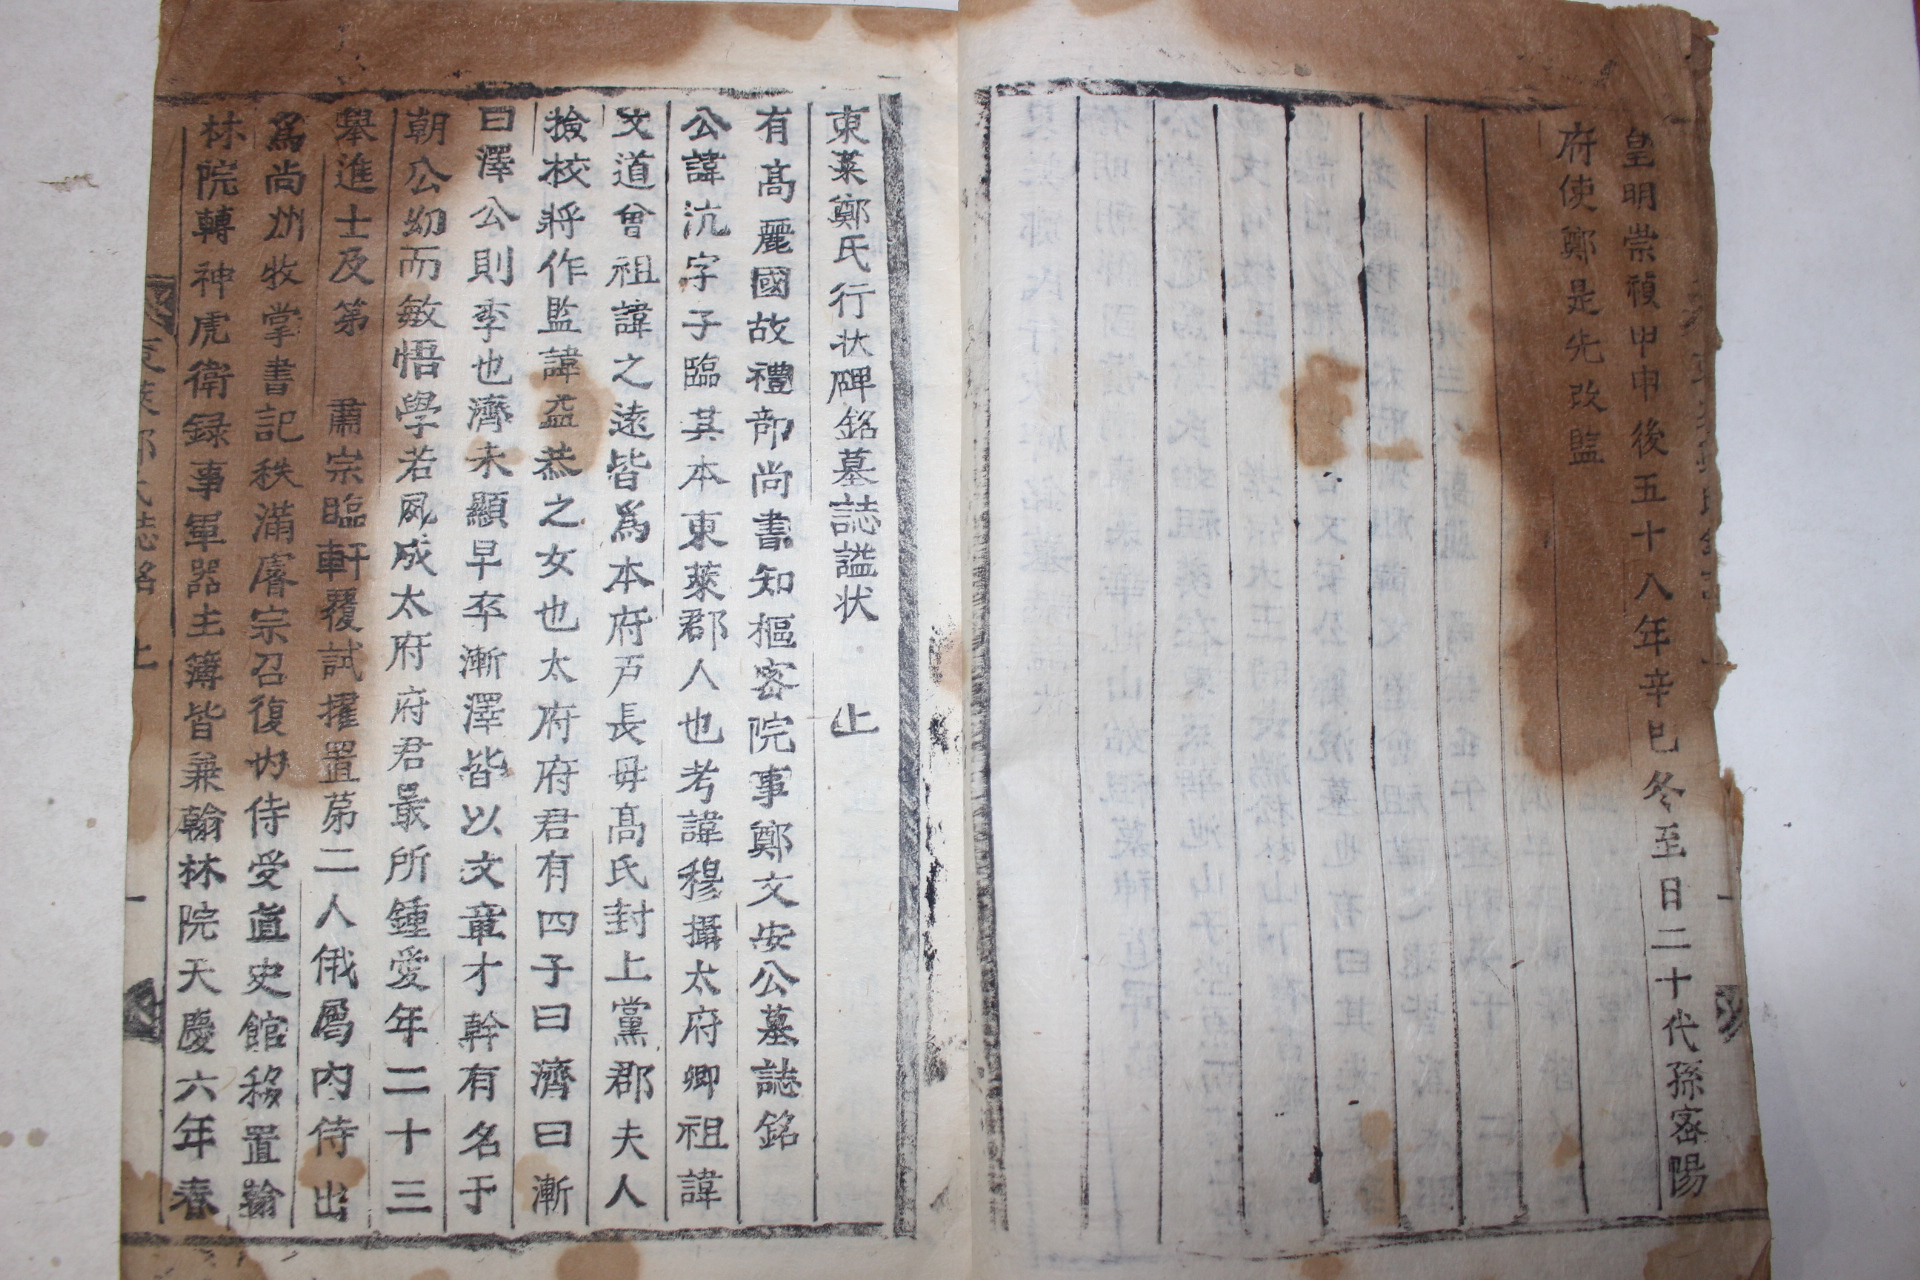 皇明崇禎甲申後五十八年辛巳冬至日二十代孫密陽
府使鄭是先改監
東萊鄭氏行狀碑銘墓誌謚狀 上
有高麗國故禮部尚書知樞密院事鄭文安公墓誌銘
公諱沆字子臨其本東萊郡人也考諱穆攝太府卿祖諱
文道曾祖諱之遠皆爲本府戶長母高氏封上黨郡夫人
撿校將作監諱益恭之女也太府府君有四子曰濟曰漸
曰澤公則季也濟未顯早卒漸澤皆以文章才幹有名于
朝公幼而敏悟學若夙成太府府君最所鍾愛年二十三
舉進士及第 肅宗臨軒覆試擢置第二人俄屬內侍出
爲尚州牧掌書記秩滿睿宗召復內侍受直史館移置翰
林院轉神虎衛録事軍器主簿皆兼翰林院天慶六年春
東萊鄭氏誌銘 上 一